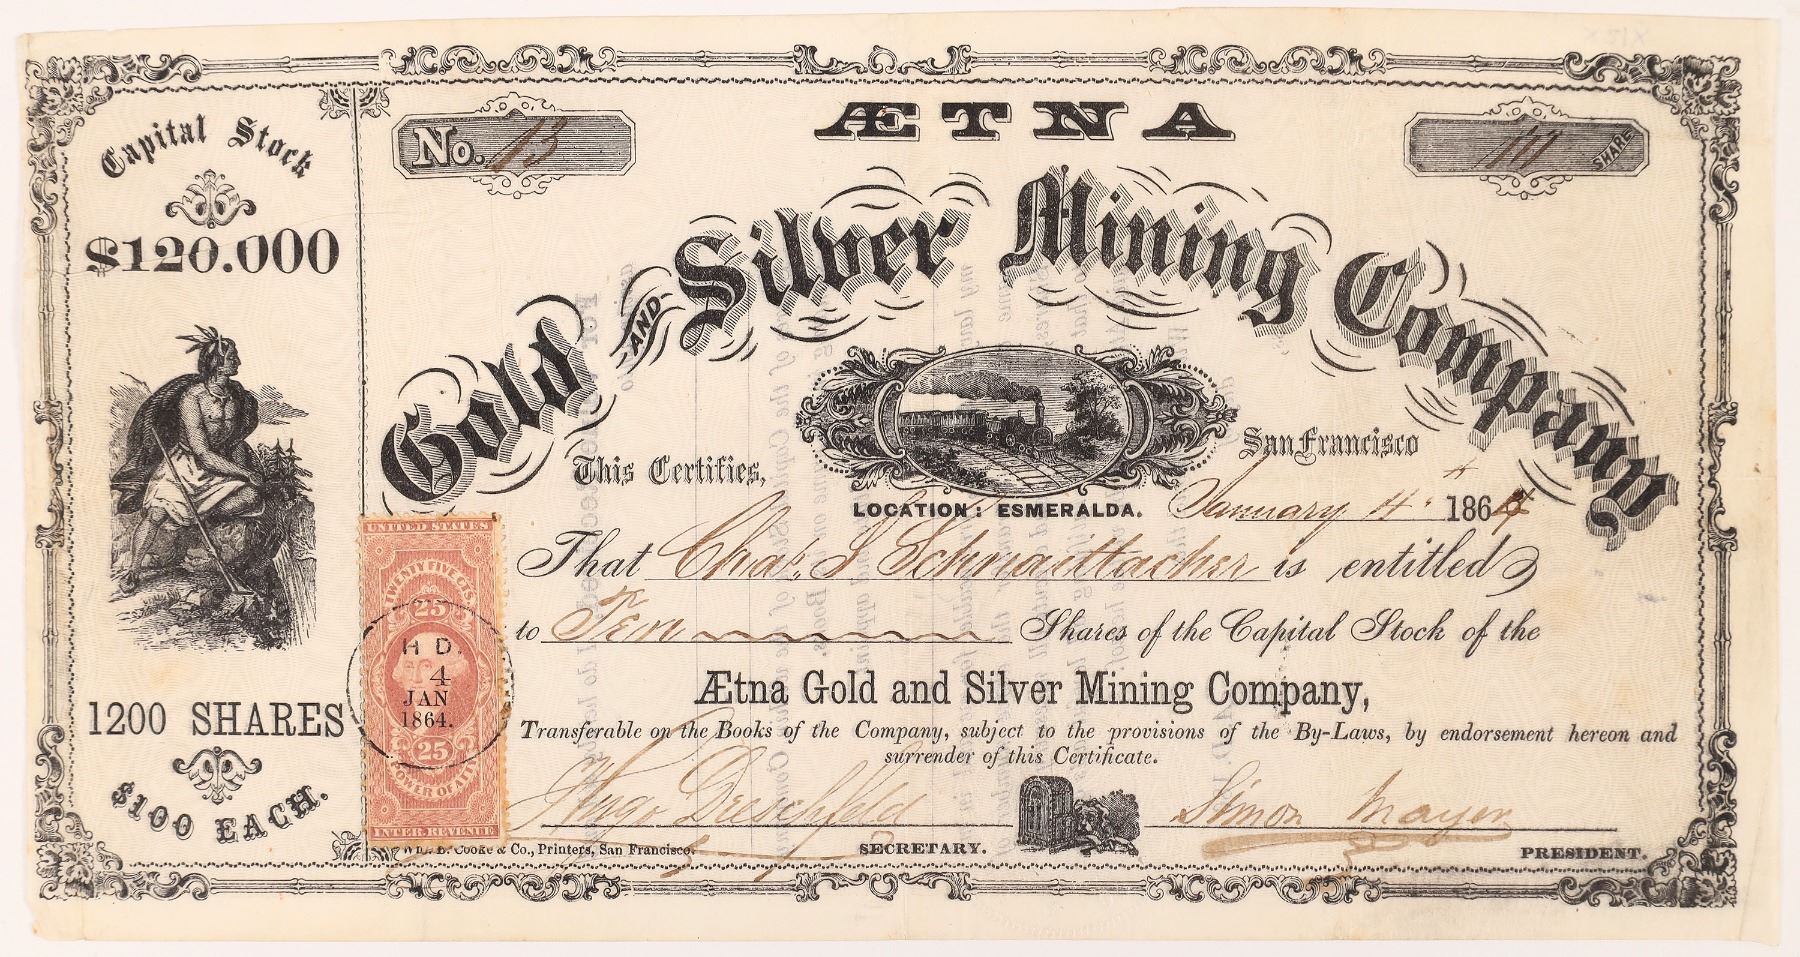 Capital Stock
$120.000
1200 SHARES
$100 EACH.
No. 13
ÆTNA
SHARE
Gold AND Silver Mining Company
This Certifies,
San Francisco
LOCATION: ESMERALDA.
January 4th 1864
That Chas. S Schnaittacher is entitled
to Ten Shares of the Capital Stock of the
Ætna Gold and Silver Mining Company,
Transferable on the Books of the Company, subject to the provisions of the By-Laws, by endorsement hereon and
surrender of this Certificate.
Hugo Dreschfeld
SECRETARY.
Simon Mayer
PRESIDENT.
Cooke & Co., Printers, San Francisco.
UNITED STATES
TWENTY FIVE CTS.
25
H D.
4
JAN
1864.
25
POWER OF ATTY
INTER. REVENUE